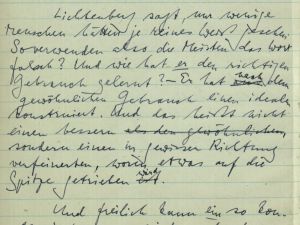 Lichtenberg sagt, nur wenige
Menschen hätten je reines Weiß gesehn.
So verwenden also die Meisten das Wort
falsch? Und wie hat er den richtigen
Gebrauch gelernt? – Er hat nach dem
gewöhnlichen Gebrauch einen idealen
konstruiert. Und das heißt nicht
einen bessern als den gewöhnlichen,
sondern einen in gewisser Richtung
verfeinerten, worin etwas auf die
Spitze getrieben wird
Und freilich kann ein so kon-